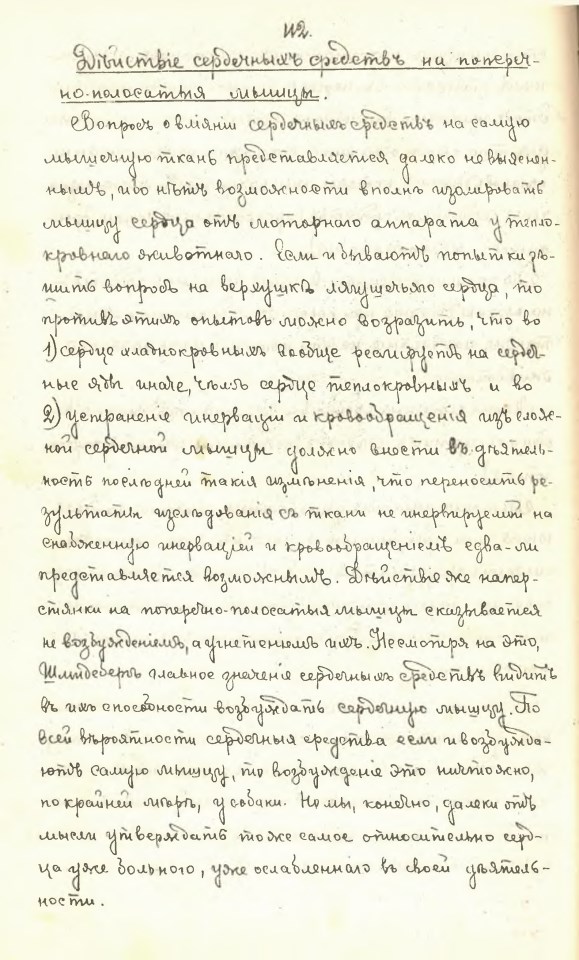 112.
Дѣйствіе сердечныхъ средствъ на попереч-
но-полосатыя мышцы.
Вопросъ о вліяніи сердечныхъ средствъ на самую
мышечную ткань представляется далеко не выяснен-
нымъ, ибо нѣтъ возможности вполнѣ изолировать
мышцу сердца отъ моторнаго аппарата у тепло-
кровнаго животнаго. Если и бываютъ попытки рѣ-
шить вопросъ на верхушкѣ лягушечьяго сердца, то
противъ этихъ опытовъ можно возразить, что во
1) сердце хладнокровныхъ вообще реагируетъ на сердеч-
ные яды иначе, чѣмъ сердце теплокровныхъ и во
2) устраненіе инерваціи и кровообращенія изъ слож-
ной сердечной мышцы должно внести въ дѣятель-
ность послѣдней такія измѣненія, что переносить ре-
зультаты изслѣдованія съ ткани не инервируемой на
снабженную инервацией и кровообращеніемъ едва-ли
представляется возможнымъ. Дѣйствіе же напер-
стянки на поперечно-полосатыя мышцы сказывается
не возбужденіемъ, а угнетеніемъ ихъ. Несмотря на это,
Шмидебергъ главное значеніе сердечныхъ средствъ видитъ
въ ихъ способности возбуждать сердечную мышцу. По
всей вѣроятности сердечныя средства если и возбужда-
ютъ самую мышцу, то возбужденіе это ничтожно,
по крайней мѣрѣ, у собаки. Но мы, конечно, далеки отъ
мысли утверждать тоже самое относительно серд-
ца уже больного, уже ослабленнаго въ своей дѣятель-
ности.